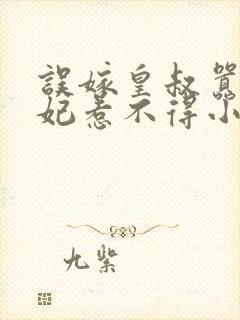 誤嫁皇叔
妃惹不得小
九紫